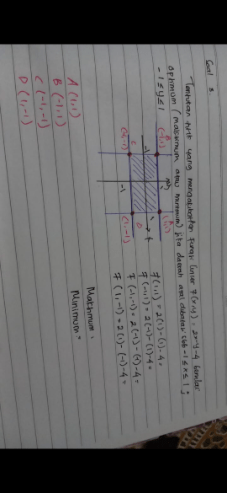 Soal 3.
Tentukan titik yang menyebabkan fungsi linier f(x,y) = 2x-y-4 bernilai
optimum (maksimum atau minimum) jika daerah asal dibatasi sbb -1 ≤ x ≤ 1 ;
-1 ≤ y ≤ 1
f(1,1) = 2(1)-(1)-4 =
f(-1,1) = 2(-1)-(1)-4 =
f(-1,-1) = 2(-1)-(-1)-4 =
f(1,-1) = 2(1)-(-1)-4 =
Maksimum =
Minimum =
A (1,1)
B (-1,1)
C (-1,-1)
D (1,-1)